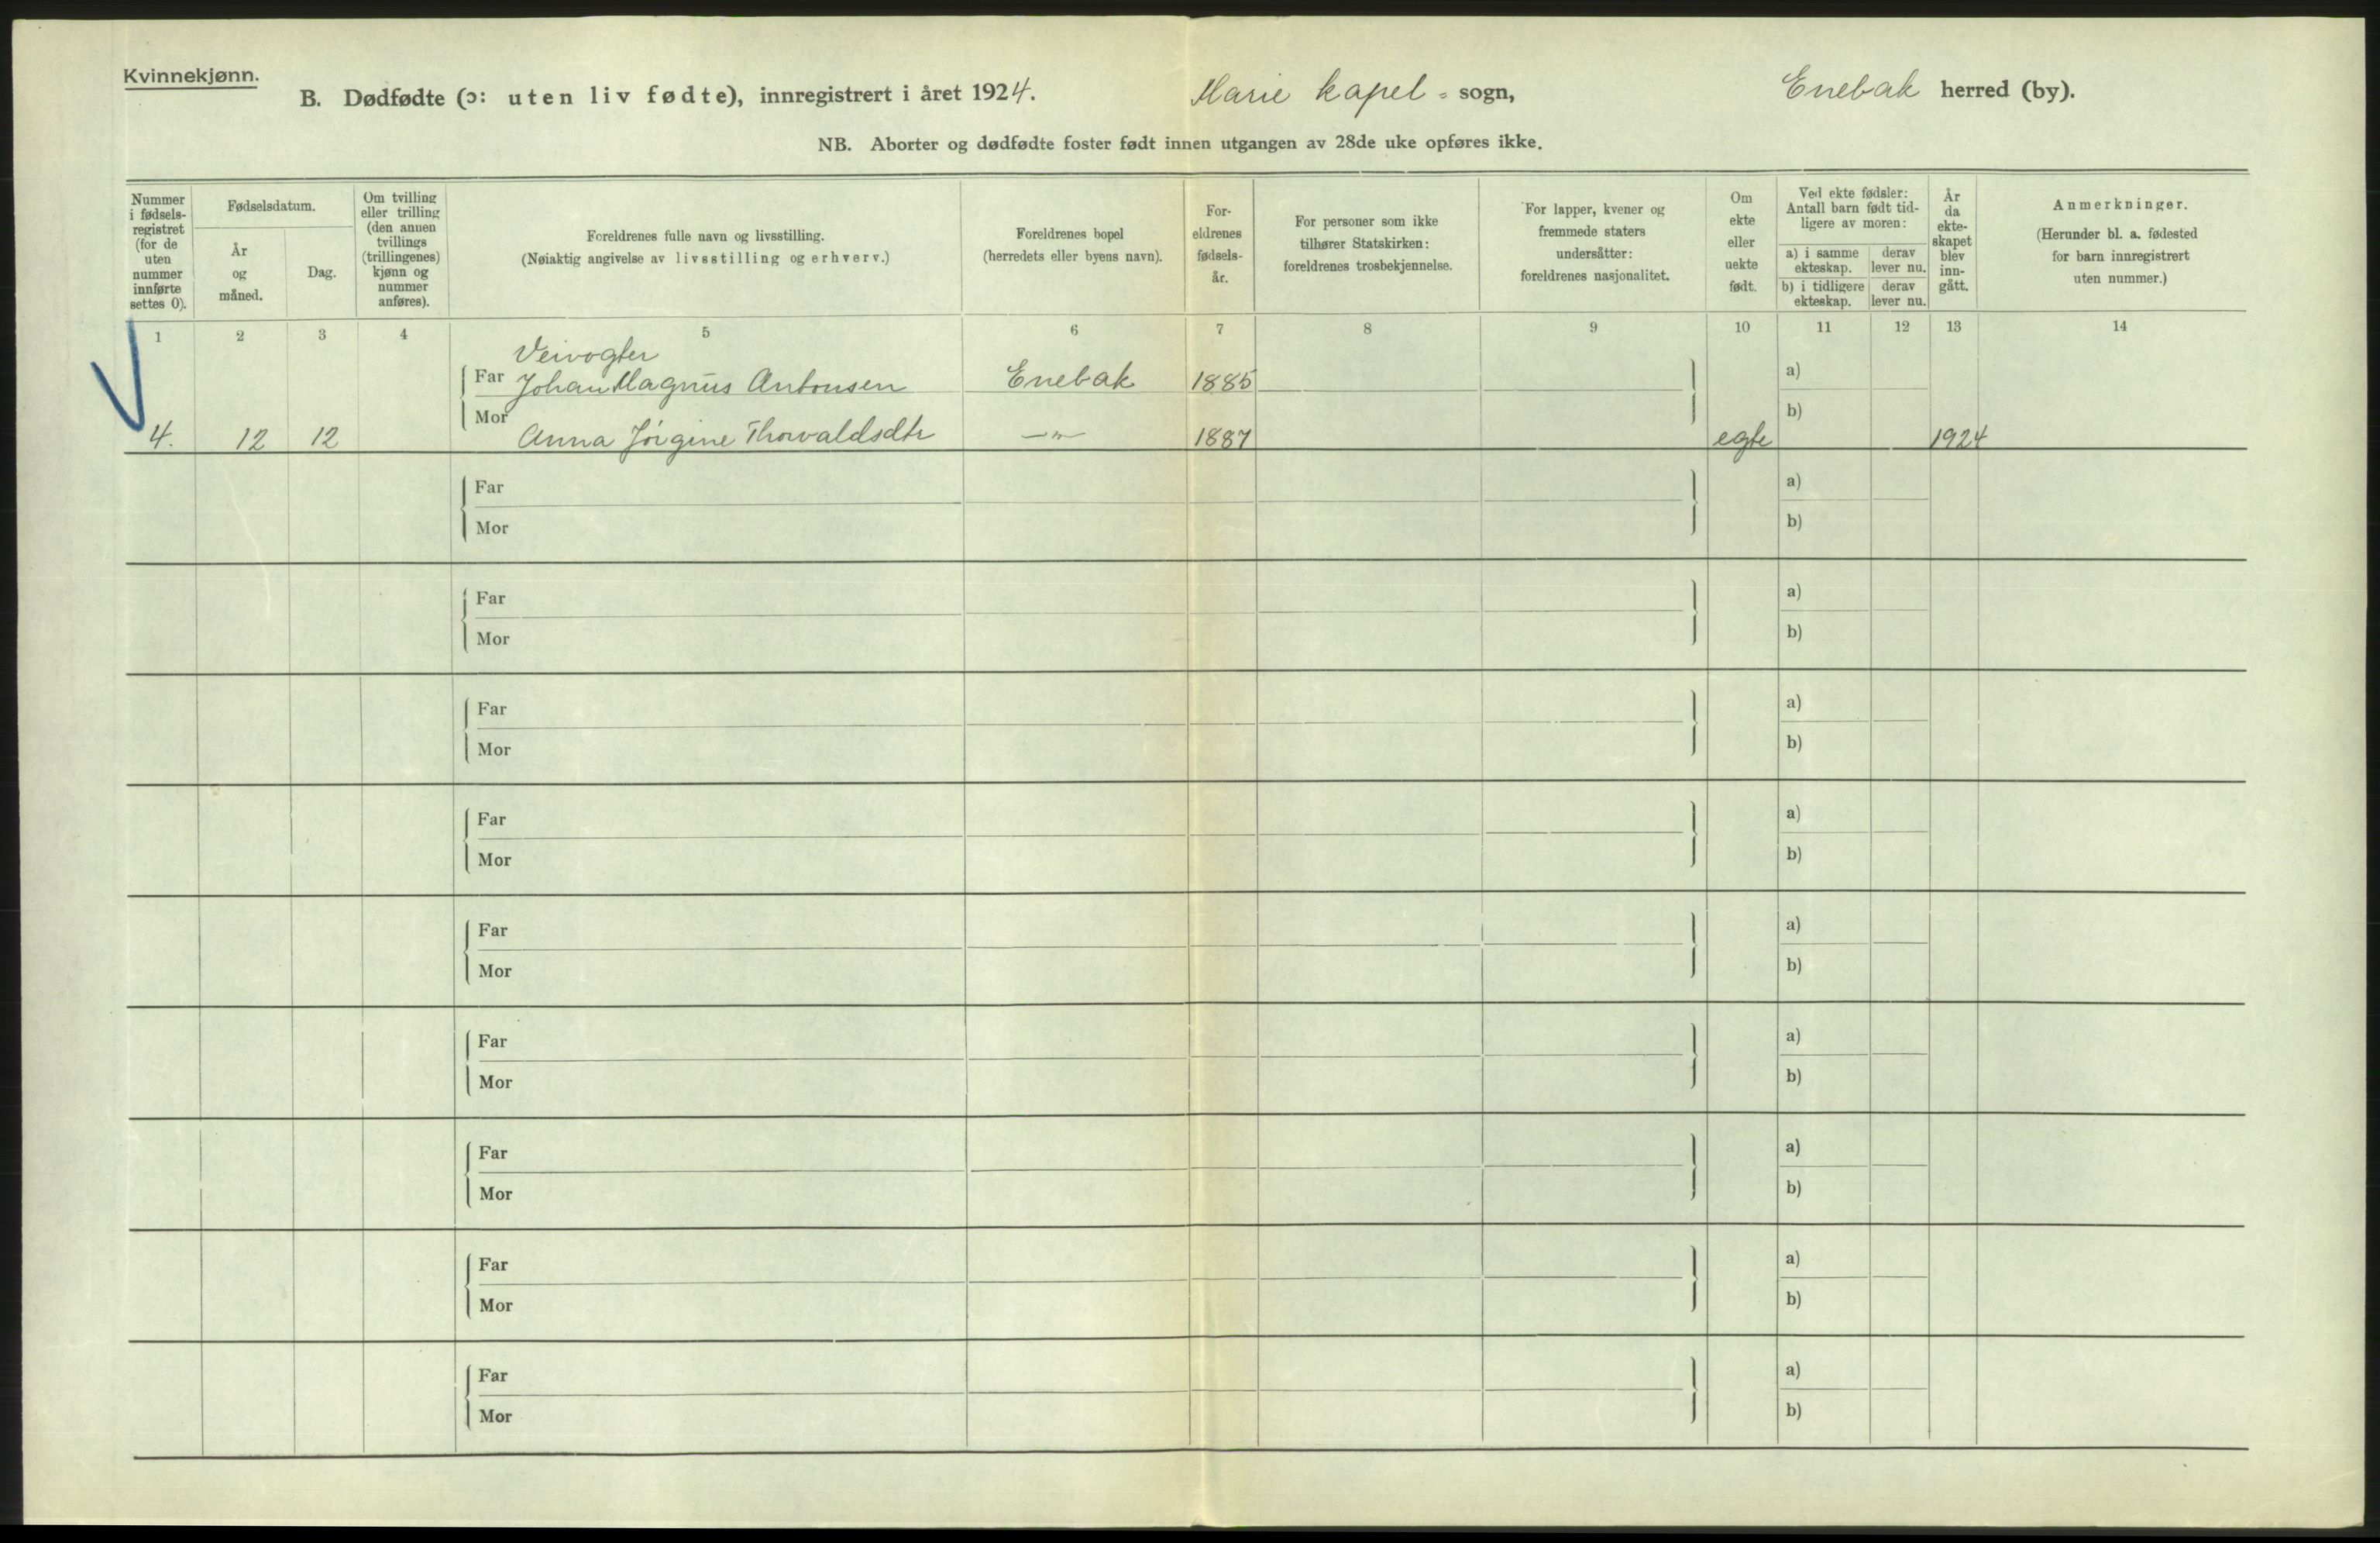 Kvinnekjønn.
B. Dødfødte (ɔ: uten liv fødte), innregistrert i året 1924. Marie kapel = sogn, Enebak herred (by).
NB. Aborter og dødfødte foster født innen utgangen av 28de uke opføres ikke.
Nummer
i fødsels-
registret
(for de
uten
nummer
innførte
settes 0).
Fødselsdatum.
År
og
måned.
Dag.
Om tvilling
eller trilling
(den annen
tvillings
(trillingenes)
kjønn og
nummer
anføres).
Foreldrenes fulle navn og livsstilling.
(Nøiaktig angivelse av livsstilling og erhverv.)
Foreldrenes bopel
(herredets eller byens navn).
For-
eldrenes
fødsels-
år.
For personer som ikke
tilhører Statskirken:
foreldrenes trosbekjennelse.
For lapper, kvener og
fremmede staters
undersåtter:
foreldrenes nasjonalitet.
Om
ekte
eller
uekte
født.
Ved ekte fødsler:
Antall barn født tid-
ligere av moren:
a) i samme
ekteskap.
derav
lever nu.
b) i tidligere
ekteskap.
derav
lever nu.
År
da
ekte-
skapet
blev
inn-
gått.
Anmerkninger.
(Herunder bl. a. fødested
for barn innregistrert
uten nummer.)
1 2 3 4 5 6 7 8 9 10 11 12 13 14
Veivogter
Far Johan Magnus Antonsen Enebak 1885 a)
Mor b)
4. 12 12 Anna Jörgine Thorvaldsdtr —"— 1887 egte 1924
Far a)
Mor b)
Far a)
Mor b)
Far a)
Mor b)
Far a)
Mor b)
Far a)
Mor b)
Far a)
Mor b)
Far a)
Mor b)
Far a)
Mor b)
Far a)
Mor b)